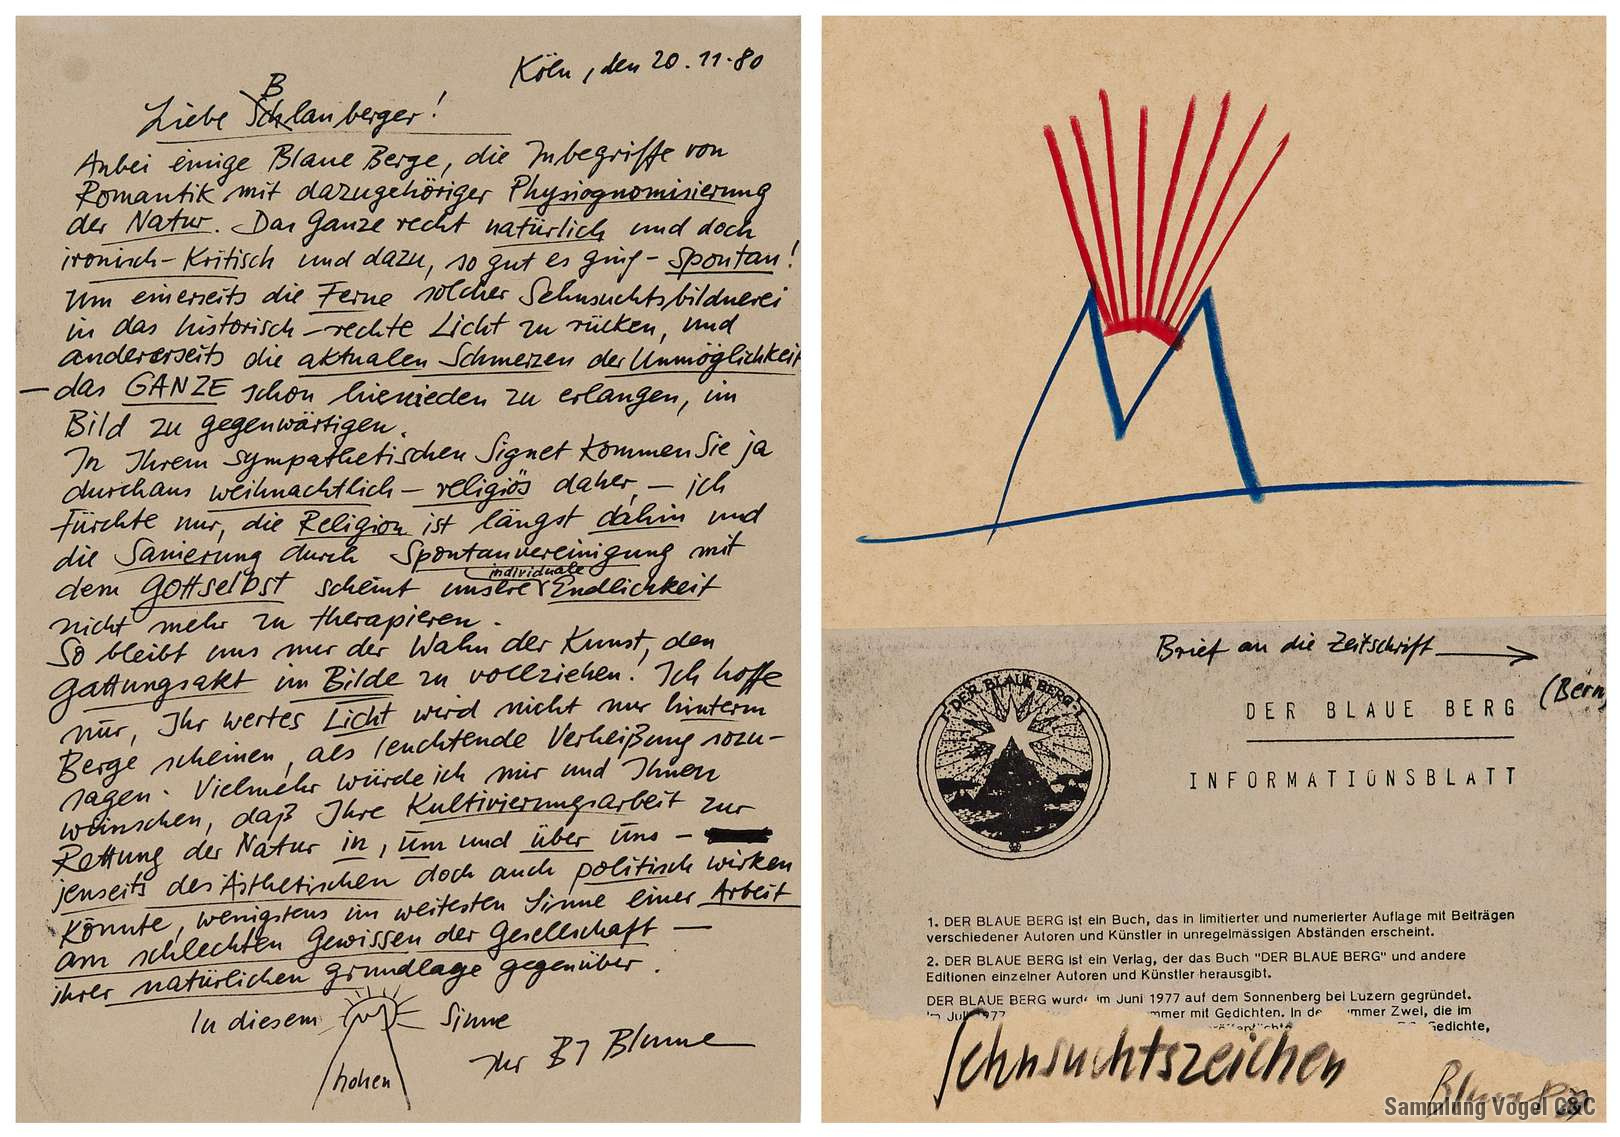 Köln, den 20.11.80
Liebe Blauberger!
Anbei einige Blaue Berge, die Inbegriffe von
Romantik mit dazugehöriger Physiognomisierung
der Natur. Das Ganze recht natürlich und doch
ironisch-Kritisch und dazu, so gut es ging - spontan!
Um einerseits die Ferne solcher Sehnsuchtsbildnerei
in das historisch-rechte Licht zu rücken, und
andererseits die aktualen Schmerzen der Unmöglichkeit
— das GANZE schon hienieden zu erlangen, im
Bild zu gegenwärtigen.
In Ihrem sympathetischen Signet kommen Sie ja
durchaus weihnachtlich-religiös daher, - ich
fürchte nur, die Religion ist längst dahin und
die Sanierung durch Spontanvereinigung mit
dem Gottselbst scheint unsere individuale Endlichkeit
nicht mehr zu therapieren.
So bleibt uns nur der Wahn der Kunst, den
Gattungsakt im Bilde zu vollziehen! Ich hoffe
nur, Ihr wertes Licht wird nicht nur hinterm
Berge scheinen, als leuchtende Verheißung sozu-
sagen. Vielmehr würde ich mir und Ihnen
wünschen, daß Ihre Kultivierungsarbeit zur
Rettung der Natur in, um und über uns -
jenseits des Ästhetischen doch auch politisch wirken
könnte, wenigstens im weitesten Sinne einer Arbeit
am schlechten Gewissen der Gesellschaft —
ihrer natürlichen Grundlage gegenüber.
In diesem Sinne
hohen
Ihr BJ Blume
Brief an die Zeitschrift
(Bern)
"DER BLAUE BERG"
DER BLAUE BERG
INFORMATIONSBLATT
1. DER BLAUE BERG ist ein Buch, das in limitierter und numerierter Auflage mit Beiträgen
verschiedener Autoren und Künstler in unregelmässigen Abständen erscheint.
2. DER BLAUE BERG ist ein Verlag, der das Buch "DER BLAUE BERG" und andere
Editionen einzelner Autoren und Künstler herausgibt.
DER BLAUE BERG wurde im Juni 1977 auf dem Sonnenberg bei Luzern gegründet.
mit Gedichten. In Zwei, die im
Gedichte,
Sehnsuchtszeichen
Blume
Sammlung Vogel C&C